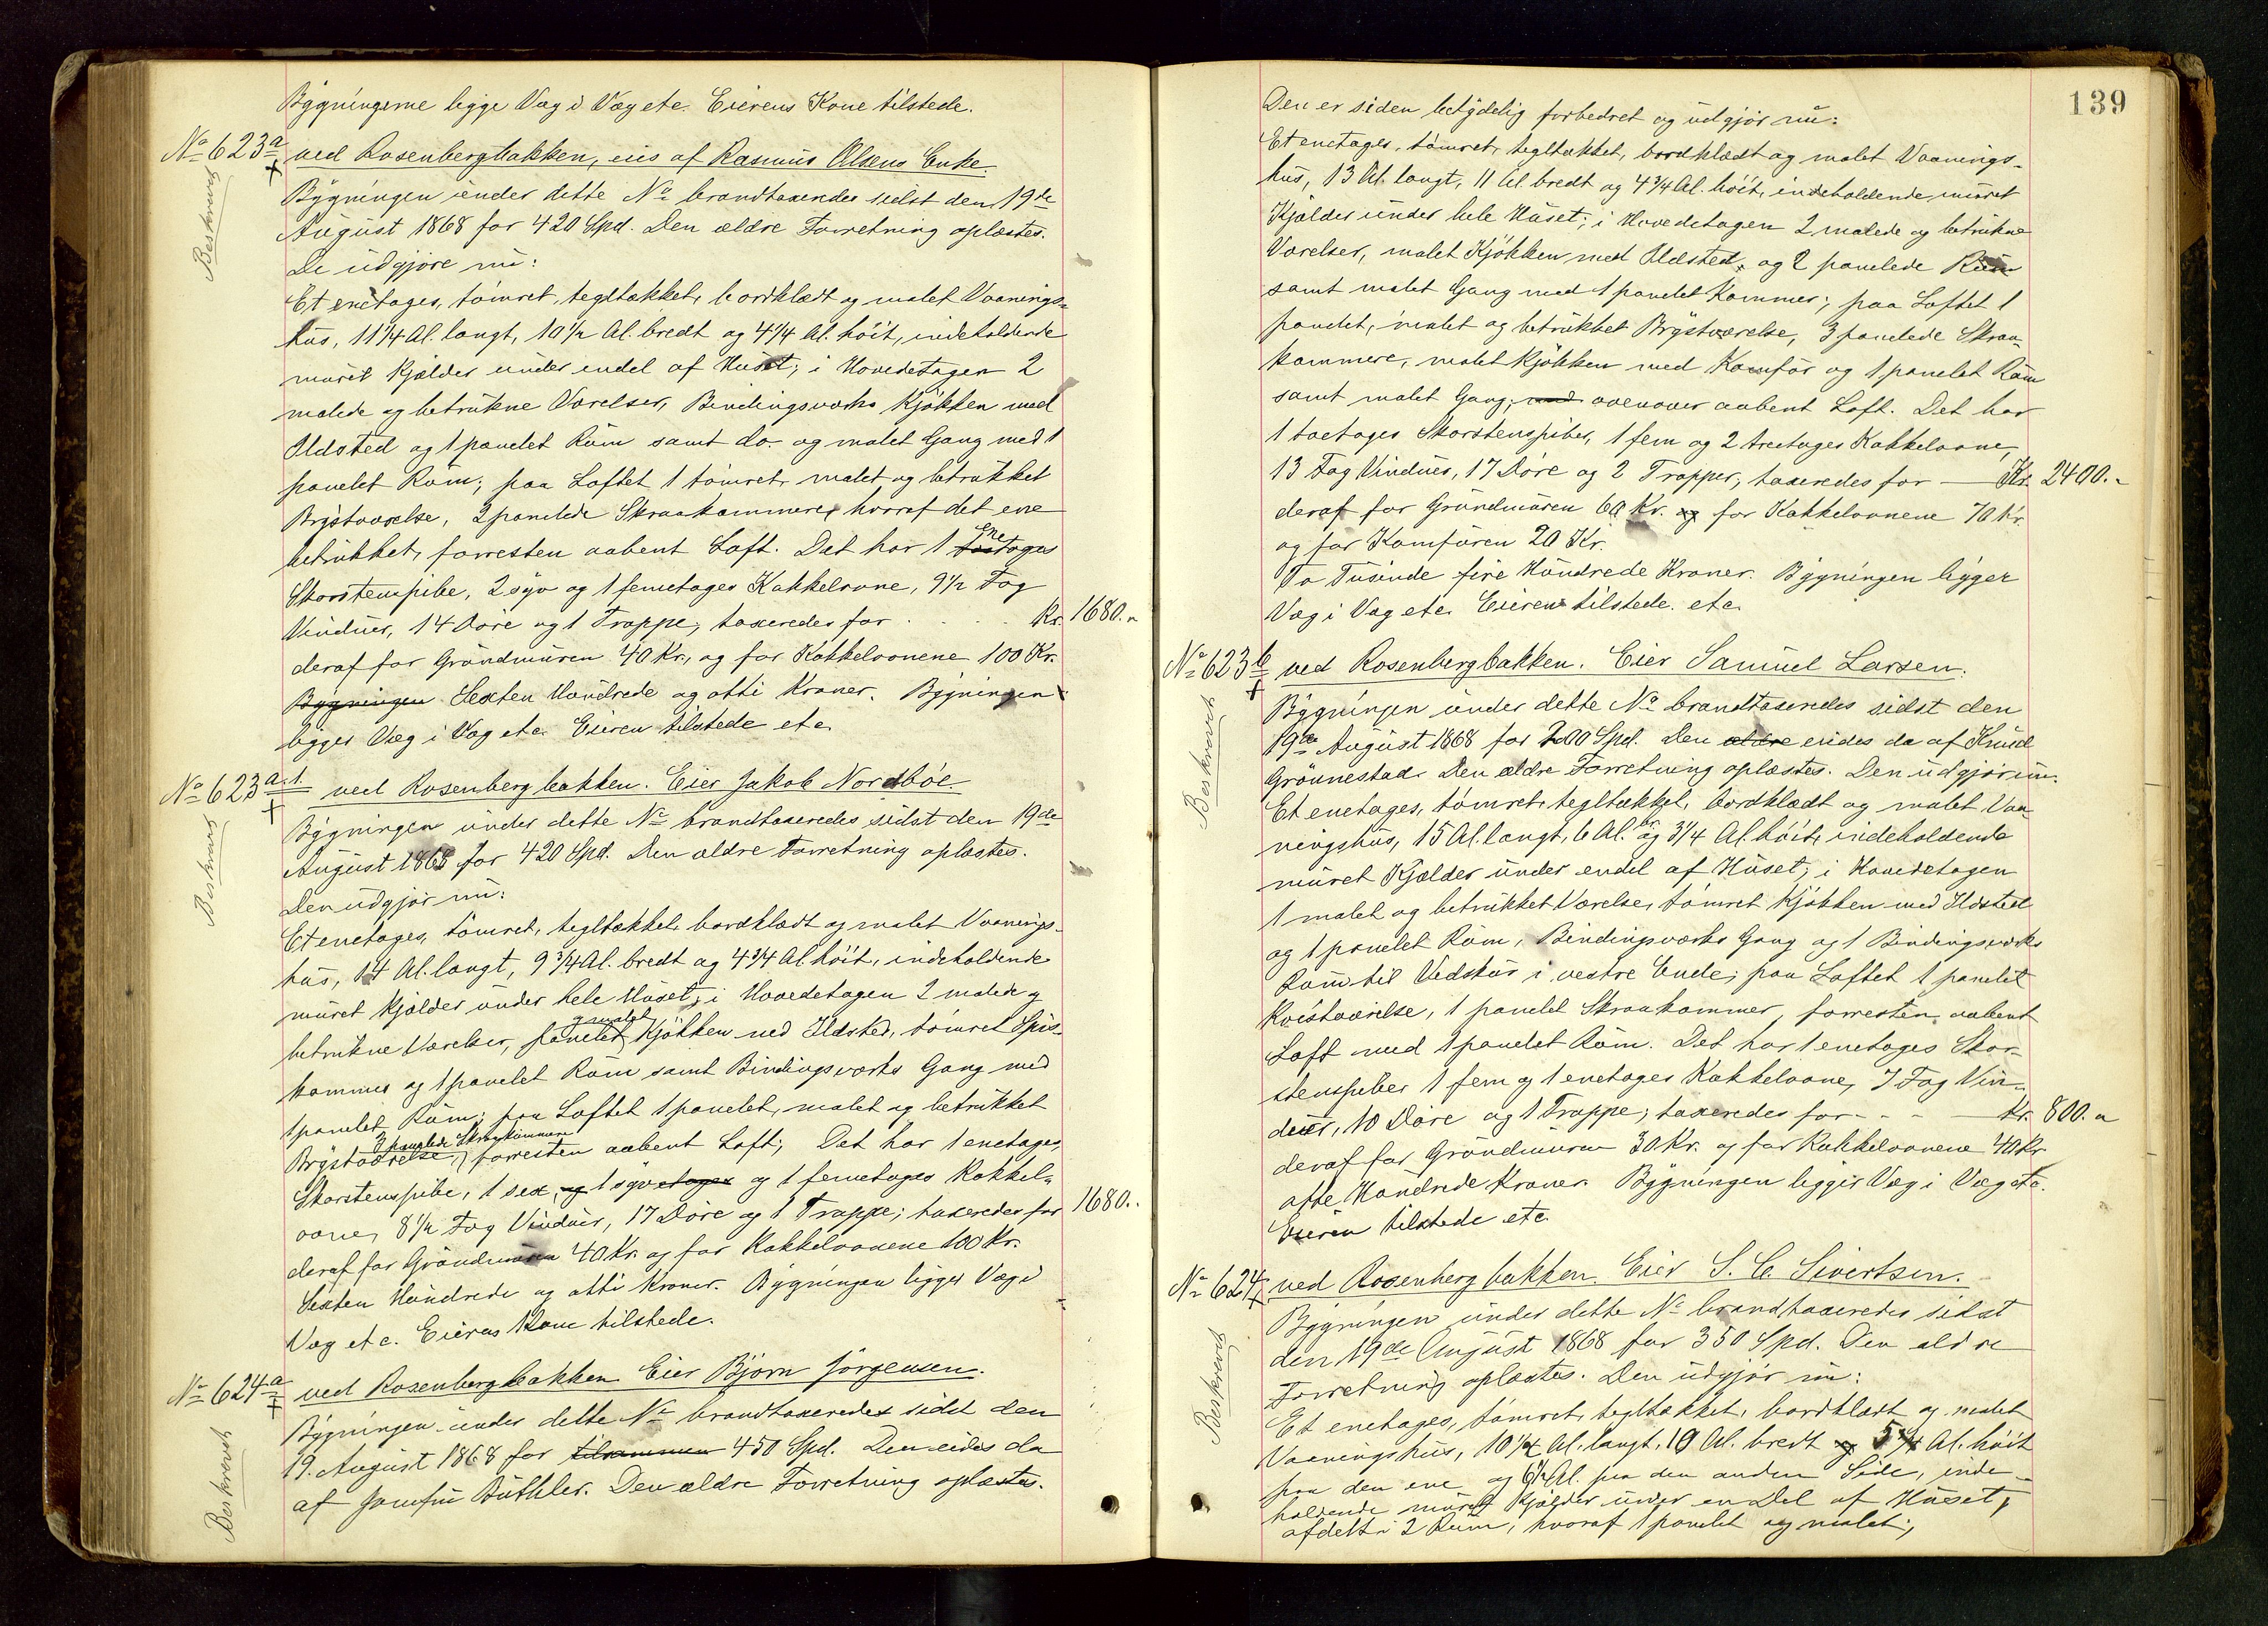 Bygningerne ligge Væg i Væg etc. Eierens Kone tilstede.
No 623a ved Rosenbergbakken, eies af Rasmus Olsens Enke.
Beskrevet
Bygningen under dette No brandtaxeredes sidst den 19de
August 1868 for 420 Spd. Den ældre Forretning oplæstes.
De udgjøre nu:
Et enetages, tømret, tegltækket, bordklædt og malet Vaanings-
hus, 11 1/4 Al. langt, 10 1/2 Al. bredt og 4 1/4 Al. høit, indeholdende
muret Kjælder under endel af Huset; i Hovedetagen 2
malede og betrukne Værelser, Bindingsværks Kjøkken med
Ildsted og 1 panelet Rum samt do. og malet Gang med 1
panelet Rum; paa Loftet 1 tømret, malet og betrukket
Brystværelse, 2 panelede Skraakammere, hvoraf det ene
betrukket, forresten aabent Loft. Det har 1 Enetages
Skorstenspibe, 2 syv og 1 femetages Kakkelovne, 9 1/2 Fag
Vinduer, 14 Døre og 1 Trappe; taxeredes for . . . . Kr. 1680.-
deraf for Grundmuren 40 Kr., og for Kakkelovnene 100 Kr.
Bygningen Sexten Hundrede og otti Kroner. Bygningen
ligger Væg i Væg etc. Eieren tilstede etc.
No 623a.1. ved Rosenbergbakken. Eier Jakob Nordbøe.
Beskrevet
Bygningen under dette No brandtaxeredes sidst den 19de
August 1868 for 420 Spd. Den ældre Forretning oplæstes.
Den udgjør nu:
Et enetages, tømret, tegltækket, bordklædt og malet Vaanings-
hus, 14 Al. langt, 9 3/4 Al. bredt og 4 3/4 Al. høit, indeholdende
muret Kjælder under hele Huset; i Hovedetagen 2 malede og
betrukne Værelser, panelet og malet Kjøkken med Ildsted, tømret Spis-
kammer og 1 panelet Rum samt Bindingsværks Gang med
1 panelet Rum; paa Loftet 1 panelet, malet og betrukket
Brystværelse, 3 panelede Skraakammere, forresten aabent Loft; Det har 1 enetages
Skorstenspibe, 1 sex, og 1 syvetages og 1 femetages Kakkel-
ovne, 8 1/2 Fag Vinduer, 17 Døre og 1 Trappe; taxeredes for 1680..
deraf for Grundmuren 40 Kr. og for Kakkelovnene 100 Kr.
Sexten Hundrede og otti Kroner. Bygningen ligger Væg i
Væg etc. Eierens Kone tilstede.
No 624a ved Rosenbergbakken Eier Bjørn Jørgensen.
Beskrevet
Bygningen under dette No brandtaxeredes sidst den
19. August 1868 for tilsammen 450 Spd. Den eides da
af Jomfru Büthler. Den ældre Forretning oplæstes.
139
Den er siden betydelig forbedret og udgjør nu:
Et enetages, tømret, tegltækket, bordklædt og malet Vaanings-
hus, 13 Al. langt, 11 Al. bredt og 4 3/4 Al. høit, indeholdende muret
Kjælder under hele Huset; i Hovedetagen 2 malede og betrukne
Værelser, malet Kjøkken med Ildsted, og 2 panelede Rum
samt malet Gang med 1 panelet Kammer; paa Loftet 1
panelet, malet og betrukket Brystværelse, 3 panelede Skraa-
kammere, malet Kjøkken med Komfør og 1 panelet Rum
samt malet Gang; med ovenover aabent Loft. Det har
1 toetages Skorstenspibe, 1 fem og 2 treetages Kakkelovne,
13 Fag Vinduer, 17 Døre og 2 Trapper, taxeredes for — Kr. 2400.-
deraf for Grundmuren 60 Kr. og for Kakkelovnene 70 Kr.
og for Komfuren 20 Kr.
To Tusinde fire Hundrede Kroner. Bygningen ligger
Væg i Væg etc. Eieren tilstede. etc.
No 623b ved Rosenbergbakken. Eier Samuel Larsen.
Beskrevet
Bygningen under dette No brandtaxeredes sidst den
19de August 1868 for 200 Spd. Den ældre eides da af Knud
Grønnestad. Den ældre Forretning oplæstes. Den udgjør nu:
Et enetages, tømret, tegltækket, bordklædt og malet Vaa-
ningshus, 15 Al. langt, 6 Al. br. og 3 1/4 Al. høit, indeholdende
muret Kjælder under endel af Huset; i Hovedetagen
1 malet og betrukket Værelse, tømret Kjøkken med Ildsted
og 1 panelet Rum, Bindingsværks Gang og 1 Bindingsværks
Rum til Vedskur i vestre Ende; paa Loftet 1 panelet
Kvistværelse, 1 panelet Skraakammer, forresten aabent
Loft med 1 panelet Rum. Det har 1 enetages Skor-
stenspibe, 1 fem og 1 enetages Kakkelovne, 7 Fag Vin-
duer, 10 Døre og 1 Trappe; taxeredes for - - - — Kr. 800.-
deraf for Grundmuren 30 Kr. og for Kakkelovnene 40 Kr.
otte Hundrede Kroner. Bygningen ligger Væg i Væg etc.
Eieren tilstede etc.
No 624 ved Rosenbergbakken. Eier S. C. Sivertsen.
Beskrevet
Bygningen under dette No brandtaxeredes sidst
den 19de August 1868 for 350 Spd. Den ældre
Forretning oplæstes. Den udgjør nu:
Et enetages, tømret, tegltækket, bordklædt og malet
Vaaningshus, 10 1/2 Al. langt, 10 Al. bredt og 5 1/4 Al. høit
paa den ene og 6 1/2 Al. paa den anden Side, inde-
holdende muret Kjælder under en Del af Huset,
afdelt i 2 Rum, hvoraf 1 panelet og malet;